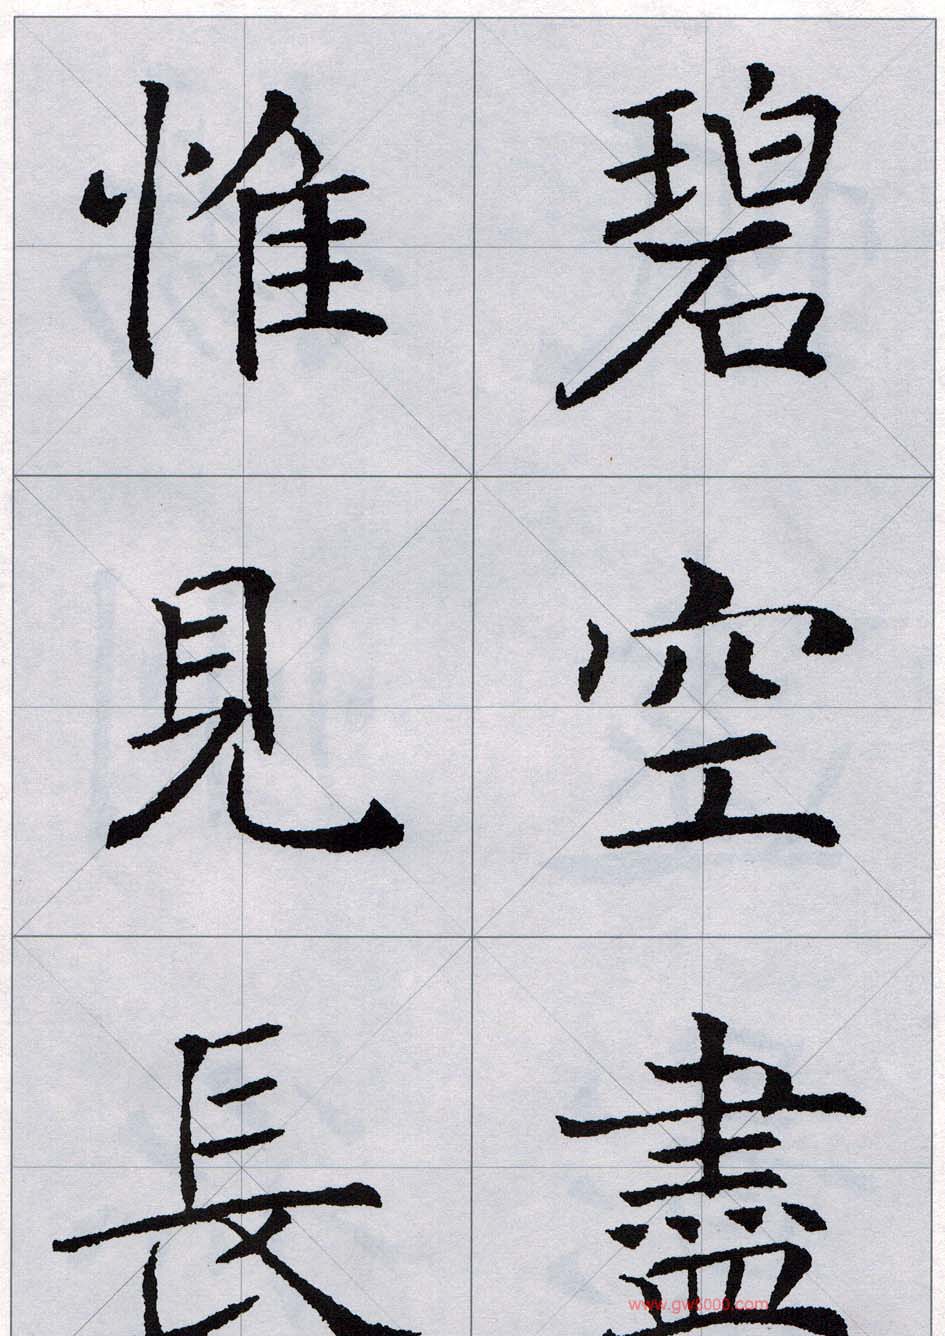 碧空盡
惟見長
www.gw5000.com